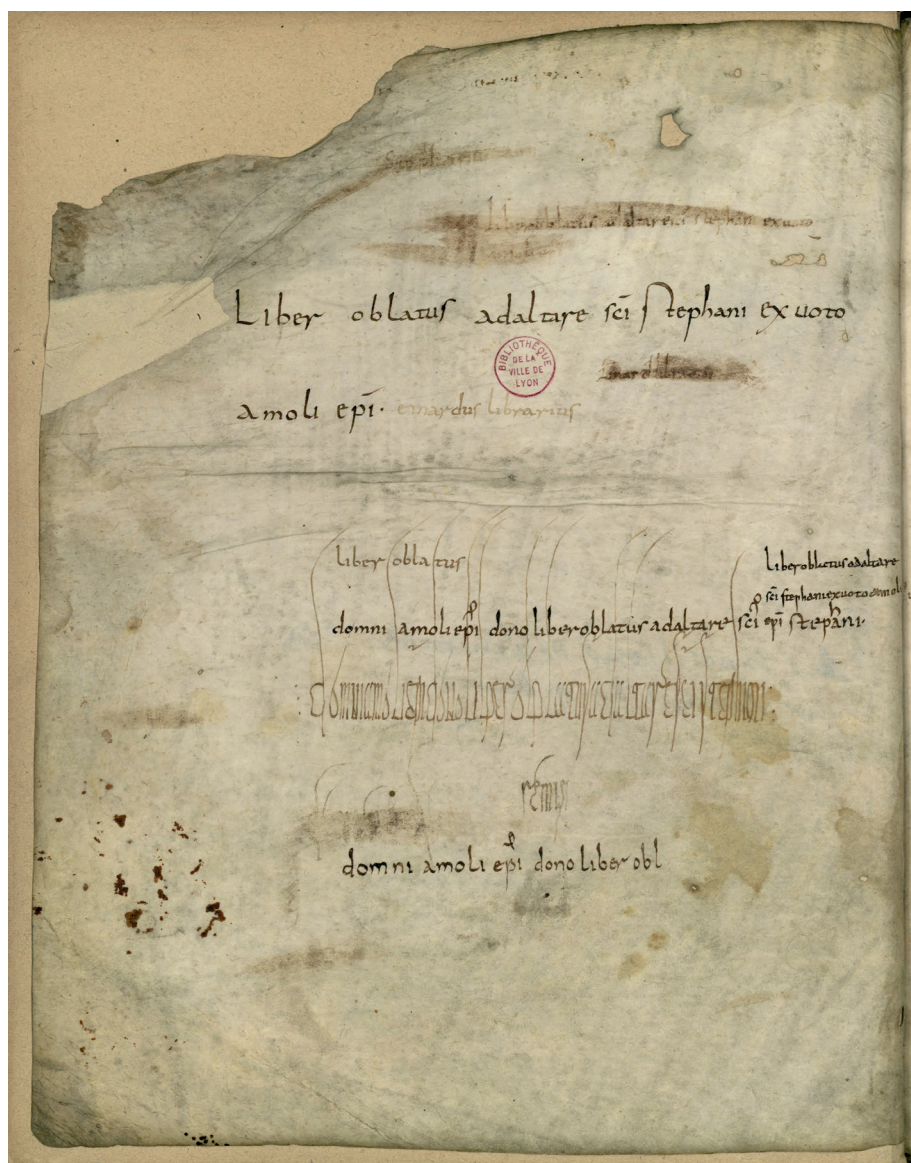 liber oblatus ad altare sci stephani ex uoto
Liber oblatus ad altare sci stephani ex uoto
BIBLIOTHÈQUE
DE LA
VILLE DE
LYON
amoli epi· emardus librarius
liber oblatus
liber oblatus ad altare
sci stephani ex uoto amoli
domni amoli epi dono liber oblatus ad altare sci epi stephani·
domni amoli epi dono liber oblatus ad altare sci stephani
domni amoli epi dono liber obl